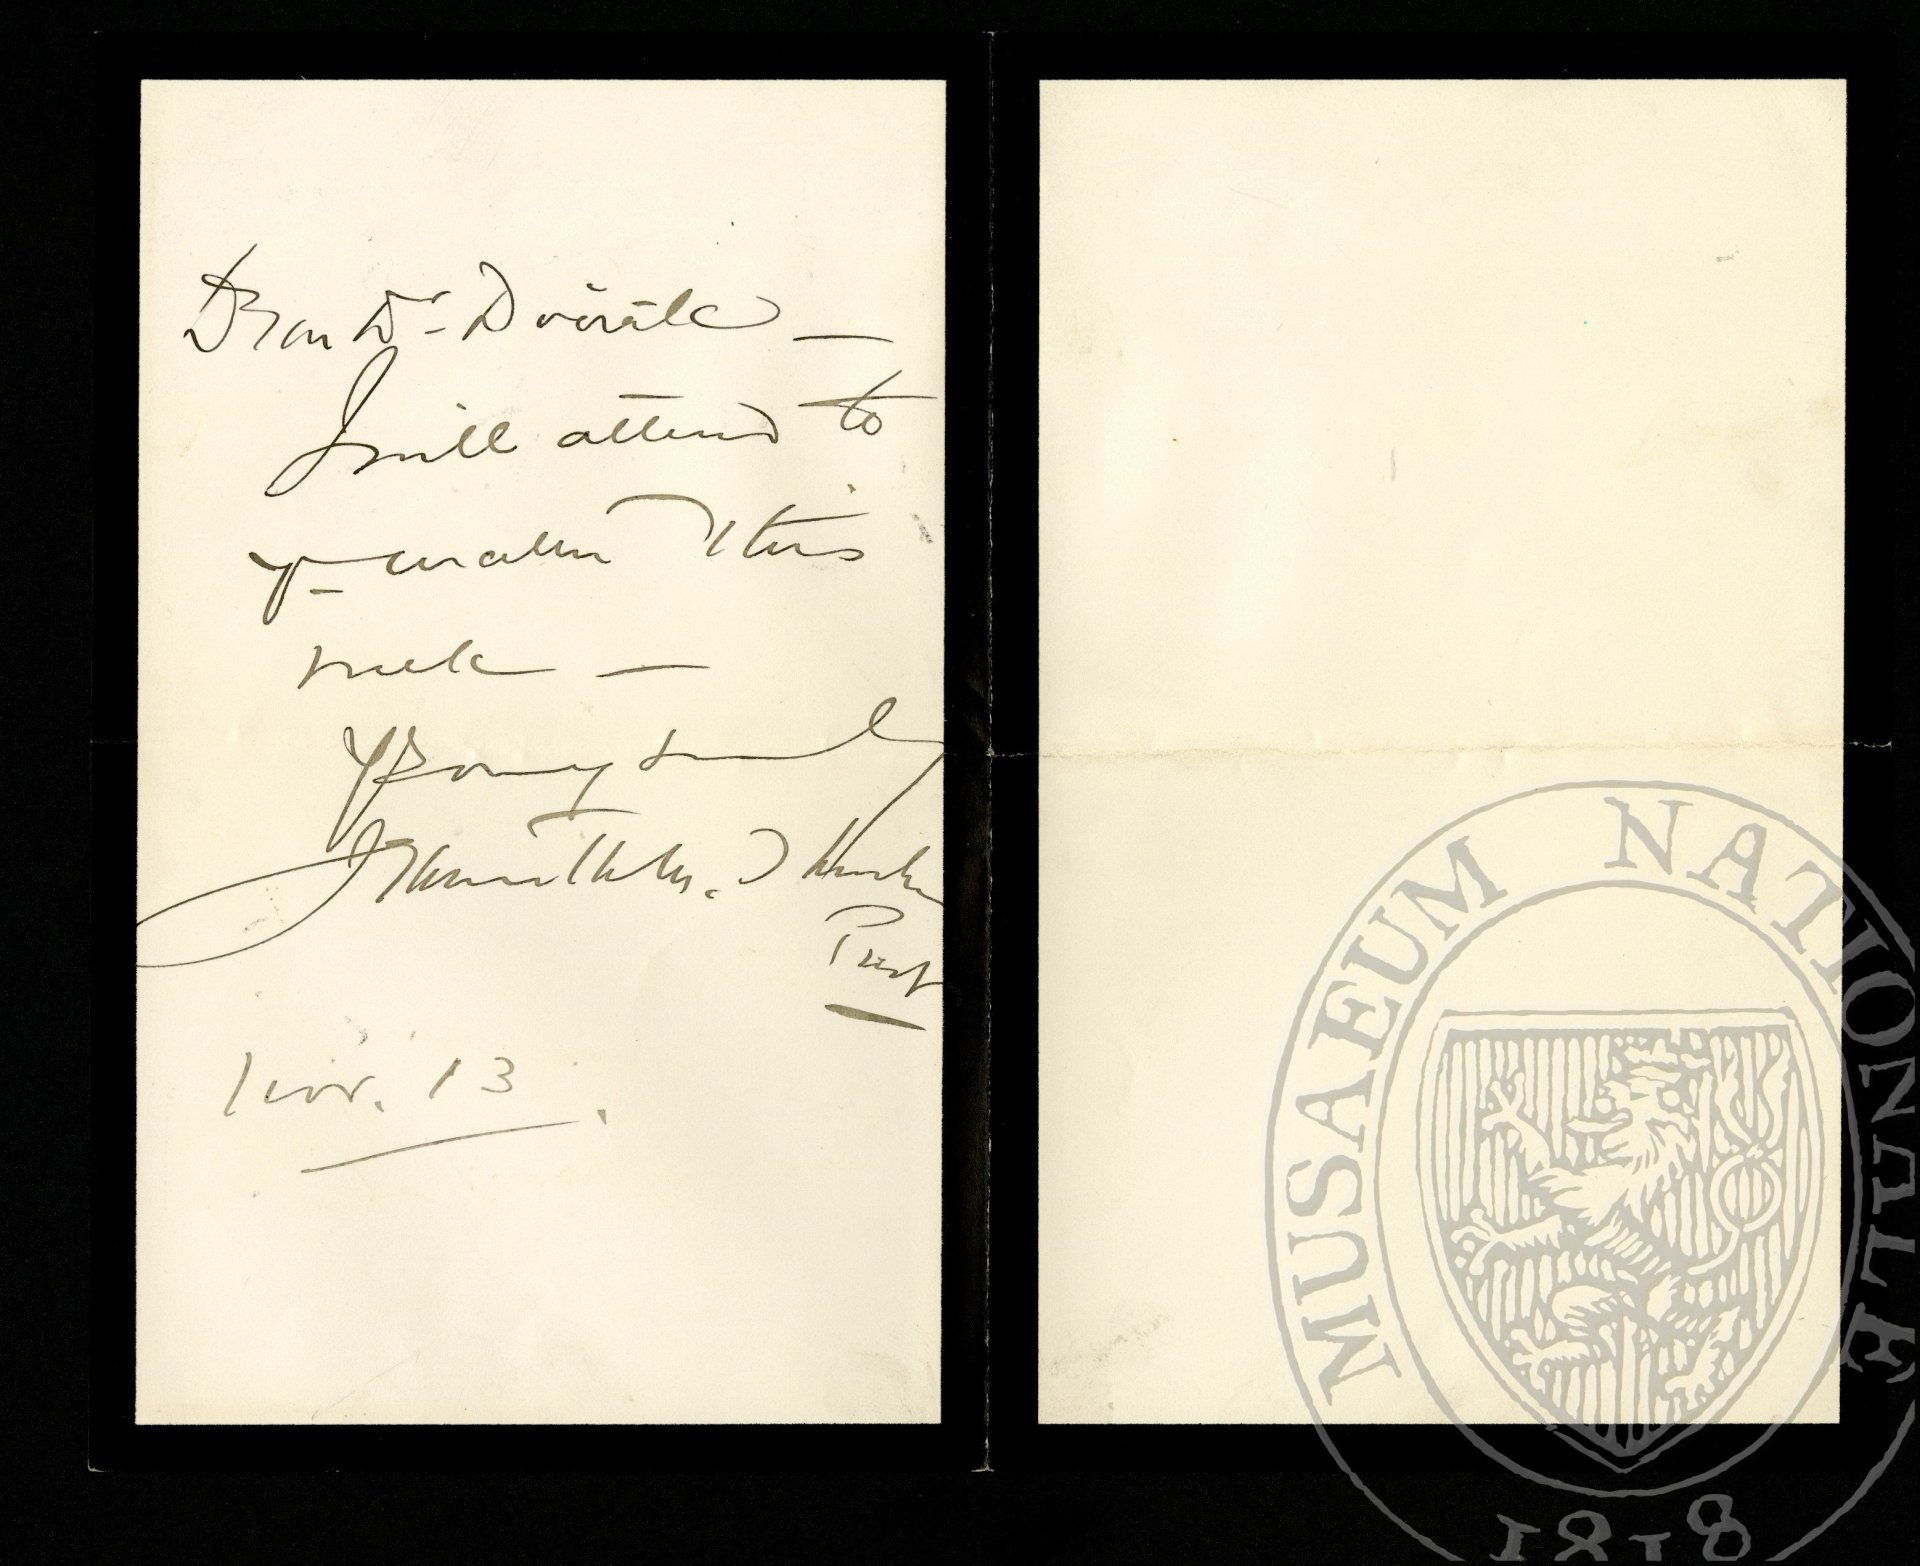 Dear Dr Dvořák —
I will attend to
yr matter this
week —
Yours truly
Jeannette M. Thurber
Prest
Nov. 13.
MUSAEUM NATIONALE
1818